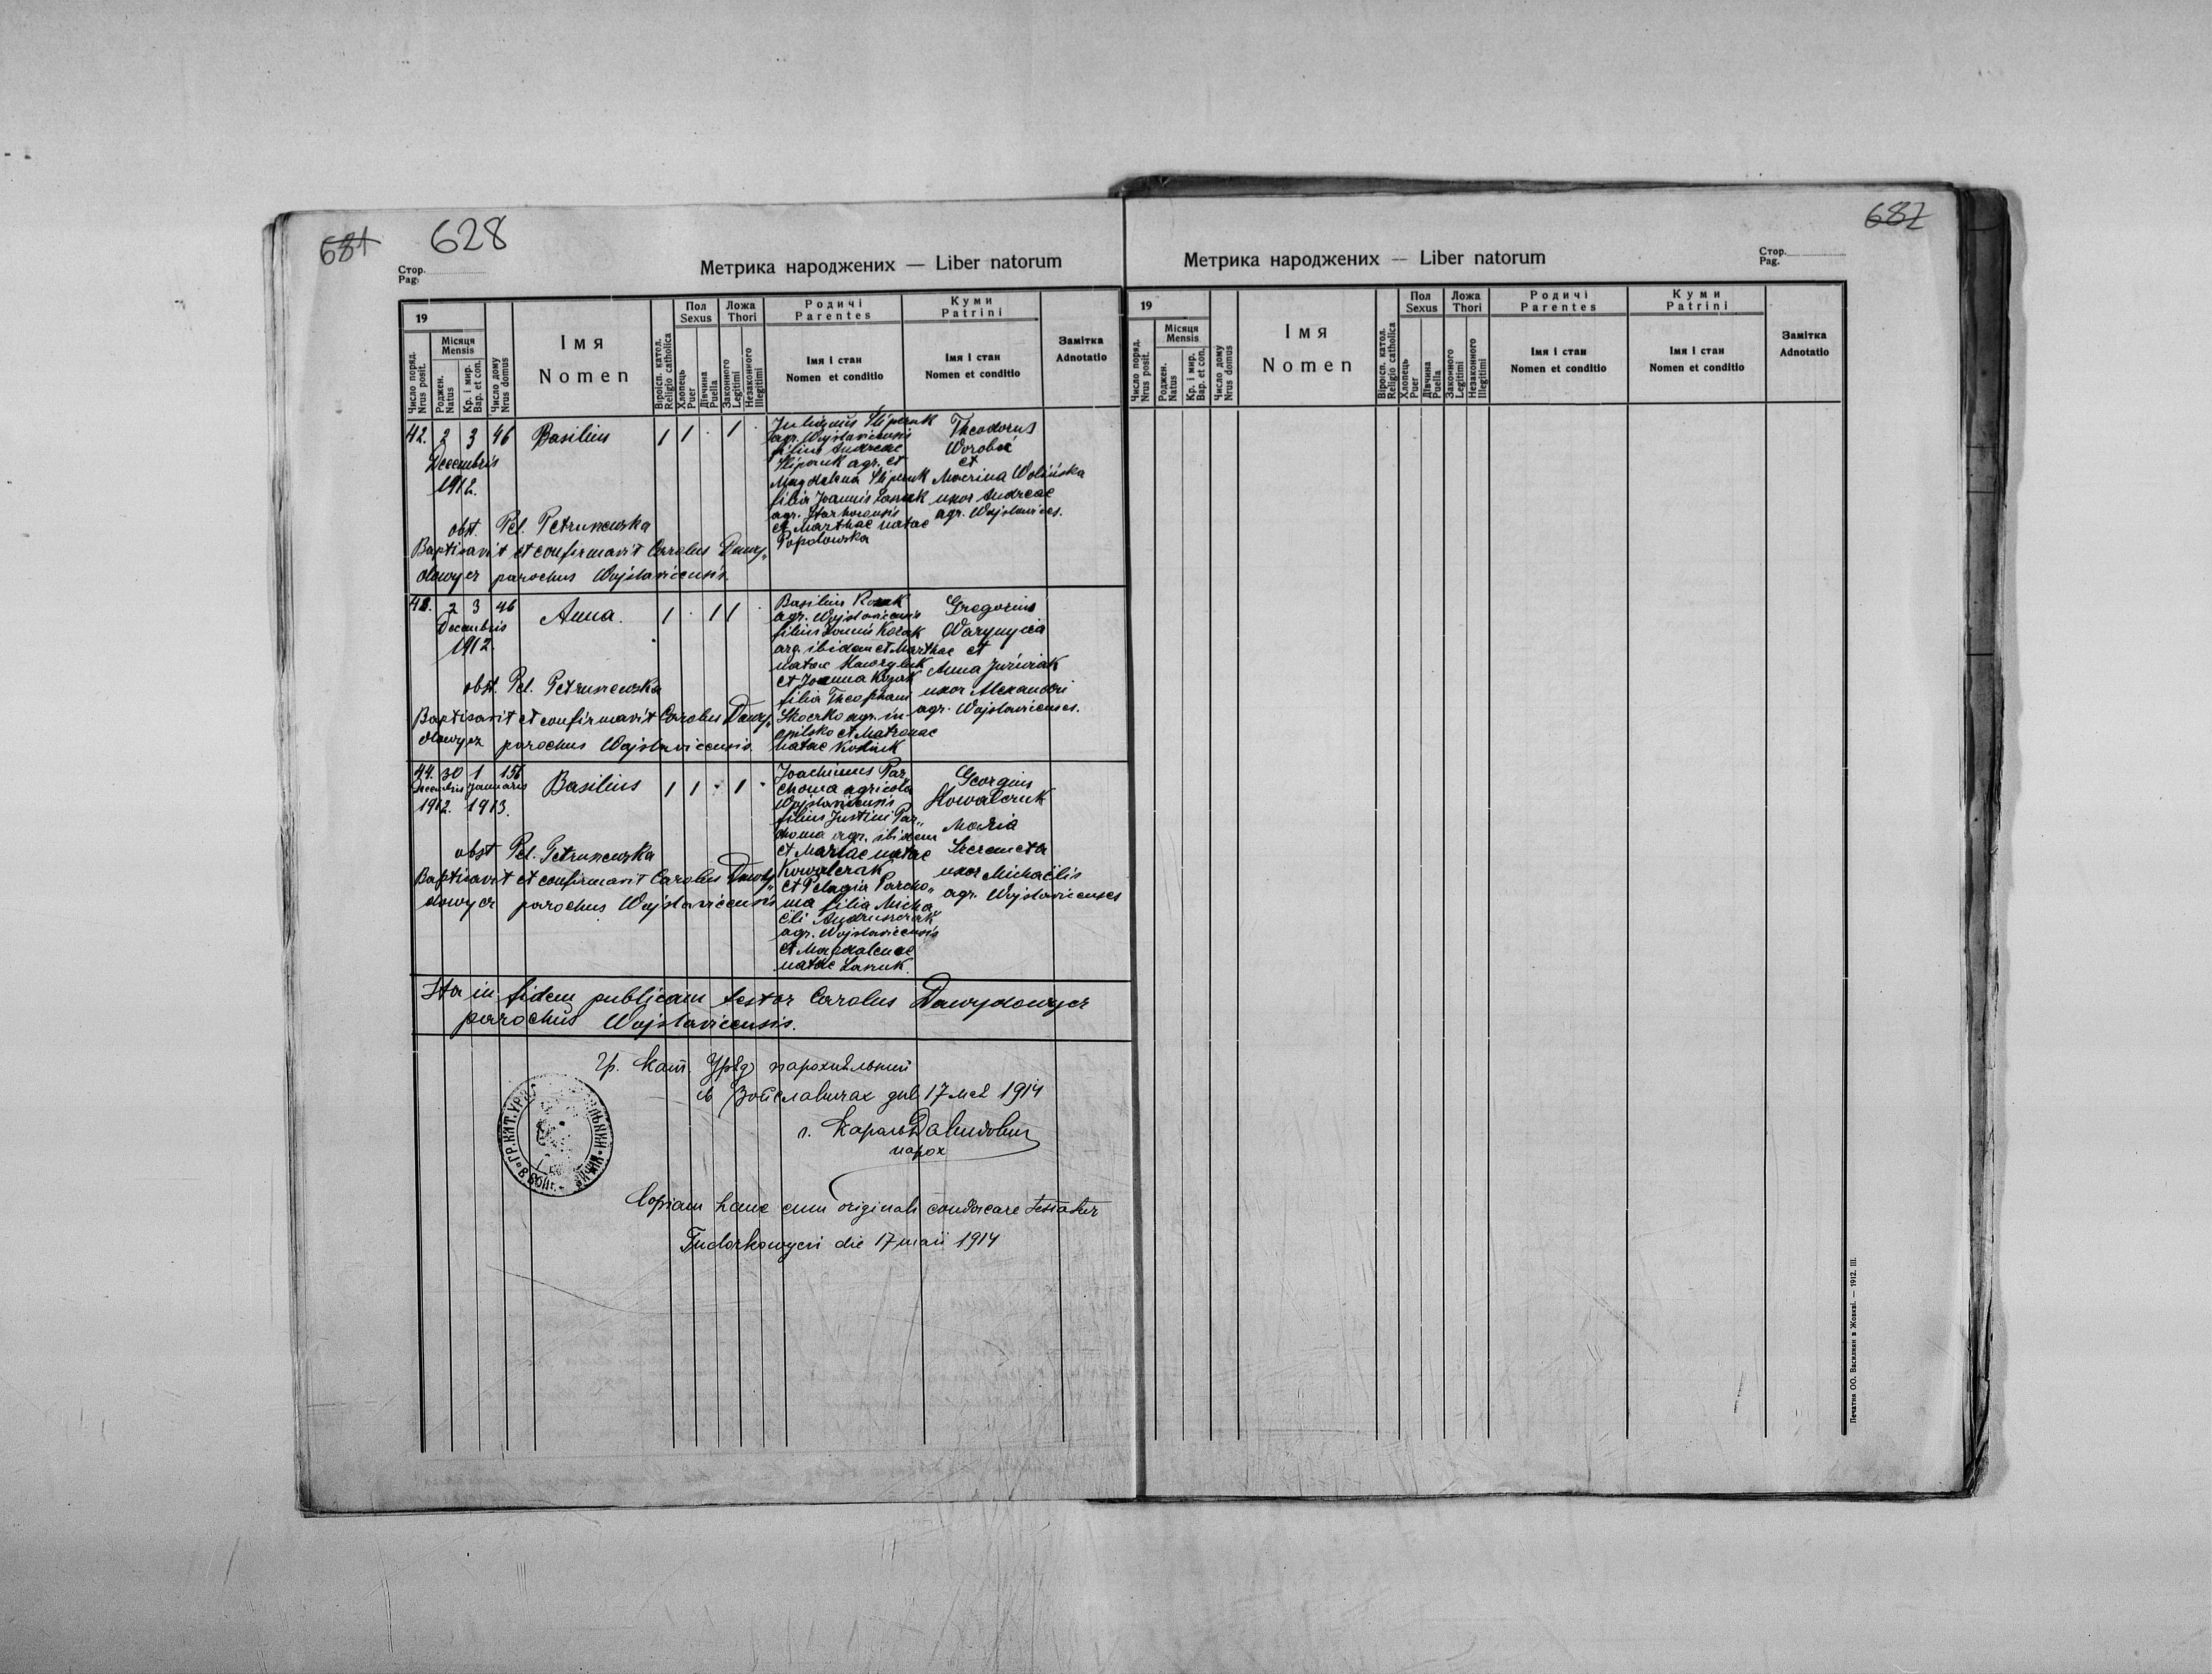 681
628
Стор.
Pag.
Метрика народжених — Liber natorum
19
Число поряд.
Nrus posit.
Місяця
Mensis
Роджен.
Natus
Кр. і мир.
Bap. et con.
Число дому
Nrus domus
Імя
Nomen
Віроісп. катол.
Religio catholica
Пол
Sexus
Хлопець
Puer
Дївчина
Puella
Ложа
Thori
Законного
Legitimi
Незаконного
Illegitimi
Родичі
Parentes
Імя і стан
Nomen et conditio
Куми
Patrini
Імя і стан
Nomen et conditio
Замітка
Adnotatio
42. 2 3 46 Basilius 1 1 . 1 .
Decembris
1912.
agr. Wojslavicensis
filius Andreae
agr. et
Magdalena
filia Joannis Lasuk
agr.
et Marthae natae
Popolowska
Theodorus
Worobec
et
Maerina Wolińska
uxor Andreae
agr. Wojslavices.
obst. Pel. Petruncwska
Baptisavit et confirmavit Carolus Dawy„
dowycz parochus Wojslavicensis.
43. 2 3 46 Anna. 1 . 1 1 .
Decembris
1912.
Basilius Kozak
agr. Wojslavicensis
filius Kozak
arg. ibidem et Marthae
natae Hawryluk
et Joanna Kozak
filia Theophani
Skoczko agr. in
et Matronae
natae
Gregorius
Warynycia
et
Anna
uxor Alexandri
agr. Wojslavicenses.
obst. Pel. Petruncwska
Baptisavit et confirmavit Carolus Dawy„
dowycz parochus Wojslavicensis.
44. 30 1 156 Basilius 1 1 . 1 .
Decembris Januaris
1912. 1913.
Joachimus Par„
choma agricola
Wojslavicensis
filius Justini Par„
choma agr. ibidem
et Mariae natae
Kowalczuk
et Pelagia Parcho„
ma filia Micha
ëli Andruszczak
agr. Wojslavicensis
et Magdalenae
natae Lasuk.
Georgius
Kowalczuk
Maria
Szeremeta
uxor Michaëlis
agr. Wojslavicenses
obst Pel. Petruncwska
Baptisavit et confirmavit Carolus Dawy„
dowycz parochus Wojslavicensis
Ita in fidem publicam testor Carolus Dawydowycz
parochus Wojslavicensis.
Гр. Кат. Уряд парохіяльний
в Войславичах дня 17 мая 1914
о. Кароль Давидович
парох
Copiam hanc cum originali concordare testatur
Tudorkowyci die 17 maii 1914
687
Метрика народжених — Liber natorum
Стор.
Pag.
19
Число поряд.
Nrus posit.
Місяця
Mensis
Роджен.
Natus
Кр. і мир.
Bap. et con.
Число дому
Nrus domus
Імя
Nomen
Віроісп. катол.
Religio catholica
Пол
Sexus
Хлопець
Puer
Дївчина
Puella
Ложа
Thori
Законного
Legitimi
Незаконного
Illegitimi
Родичі
Parentes
Імя і стан
Nomen et conditio
Куми
Patrini
Імя і стан
Nomen et conditio
Замітка
Adnotatio
Печатня ОО. Василиян в Жовкві. — 1912. III.